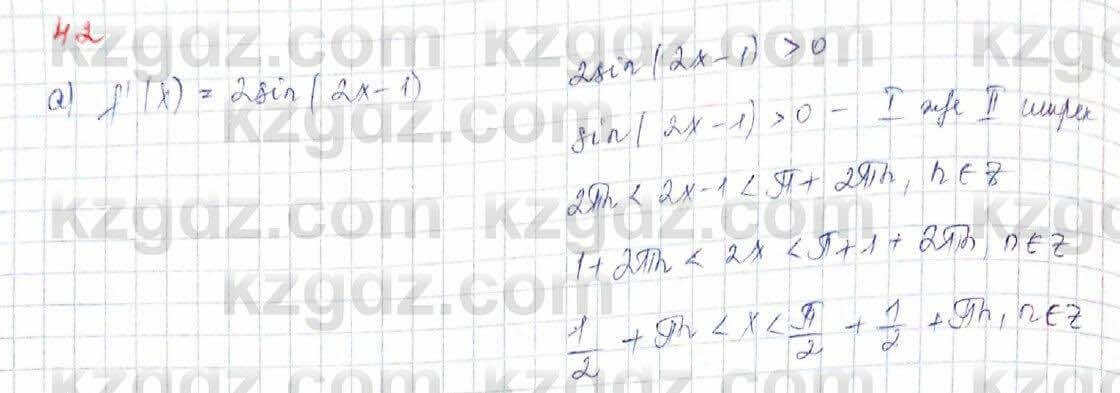 42
a) f'(x) = 2sin(2x-1)
2sin(2x-1) > 0
sin(2x-1) > 0 - I және II ширек
2πn < 2x-1 < π + 2πn, n ∈ Z
1 + 2πn < 2x < π + 1 + 2πn, n ∈ Z
1/2 + πn < x < π/2 + 1/2 + πn, n ∈ Z
kzgdz.com
kzgdz.com
kzgdz.com
kzgdz.com
kzgdz.com
kzgdz.com
kzgdz.com
kzgdz.com